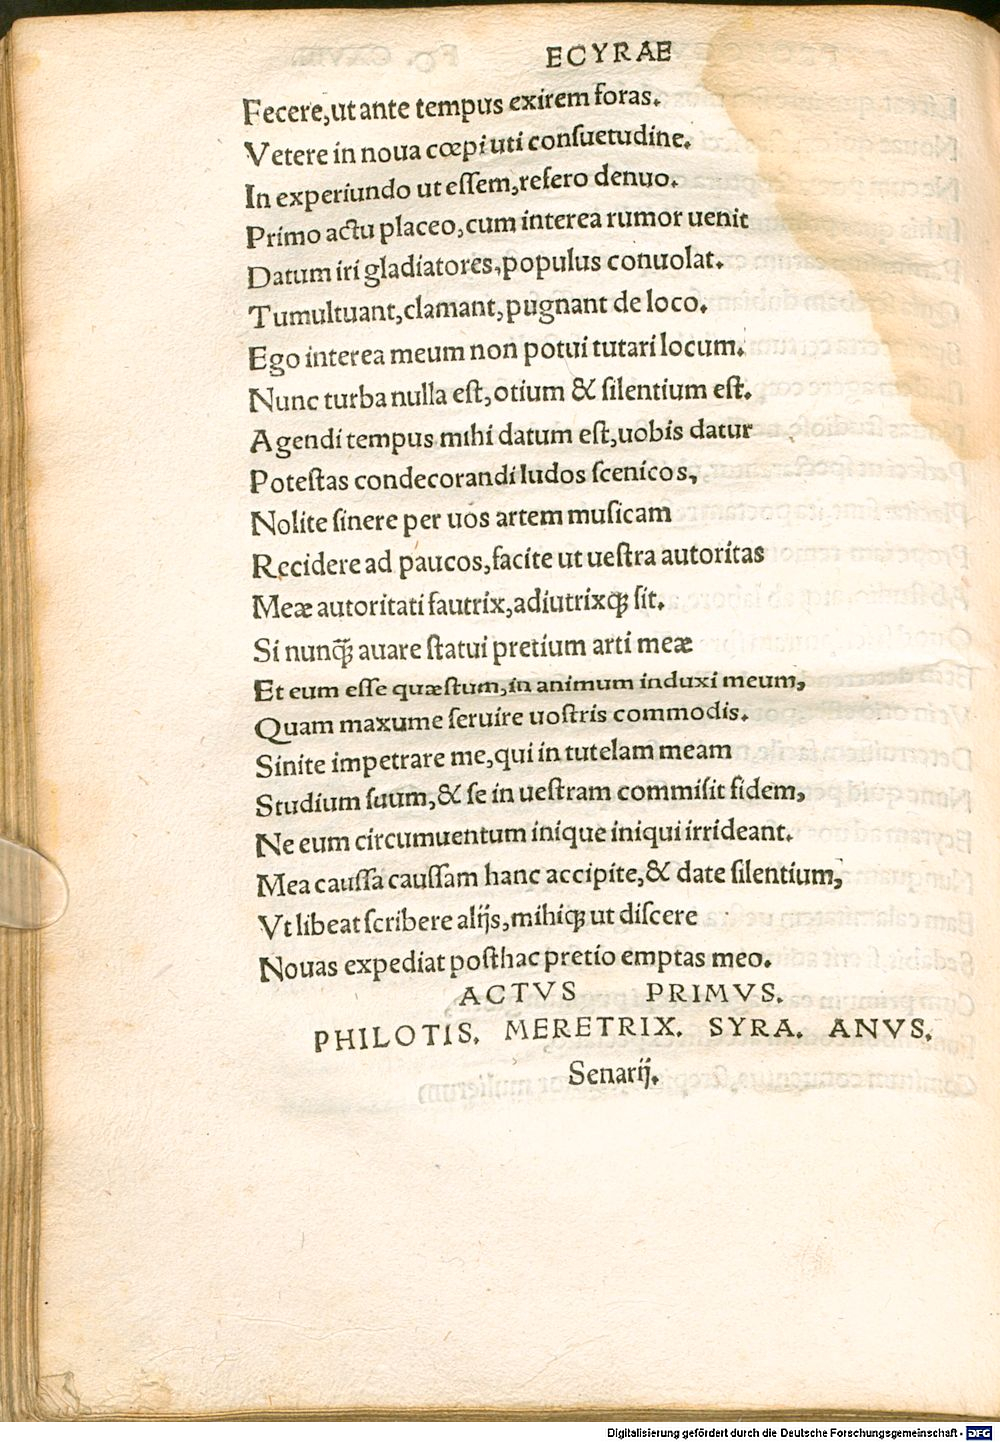 ECYRAE
Fecere,ut ante tempus exirem foras.
Vetere in noua cœpi uti conſuetudine.
In experiundo ut eſſem,refero denuo.
Primo actu placeo,cum interea rumor uenit
Datum iri gladiatores,populus conuolat.
Tumultuant,clamant,pugnant de loco.
Ego interea meum non potui tutari locum.
Nunc turba nulla eſt,otium & ſilentium eſt.
Agendi tempus mihi datum eſt,uobis datur
Poteſtas condecorandi ludos ſcenicos,
Nolite ſinere per uos artem muſicam
Recidere ad paucos,facite ut ueſtra autoritas
Meæ autoritati fautrix,adiutrixꝙ ſit.
Si nunꝙ̃ auare ſtatui pretium arti meæ
Et eum eſſe quæſtum,in animum induxi meum,
Quam maxume ſeruire uoſtris commodis.
Sinite impetrare me,qui in tutelam meam
Studium ſuum,& ſe in ueſtram commiſit fidem,
Ne eum circumuentum inique iniqui irrideant.
Mea cauſſa cauſſam hanc accipite,& date ſilentium,
Vt libeat ſcribere alijs,mihiꝙ ut diſcere
Nouas expediat poſthac pretio emptas meo.
ACTVS PRIMVS.
PHILOTIS. MERETRIX. SYRA. ANVS.
Senarij.
Digitalisierung gefördert durch die Deutsche Forschungsgemeinschaft - DFG